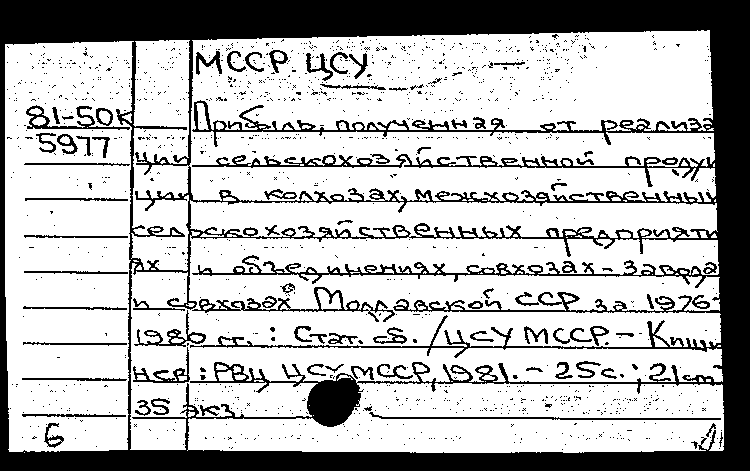 МССР. ЦСУ.
81-50к Прибыль, полученная от реализа
5977 ции сельскохозяйственной продук
ции в колхозах, межхозяйственных
сельскохозяйственных предприяти
ях и объединениях, совхозах-завода
и совхозах Молдавской ССР за 1976-
1980 гг. : Стат. сб. / ЦСУ МССР. - Киши
нев : РВЦ ЦСУ МССР, 1981. - 25 с. ; 21 см
35 экз.
б